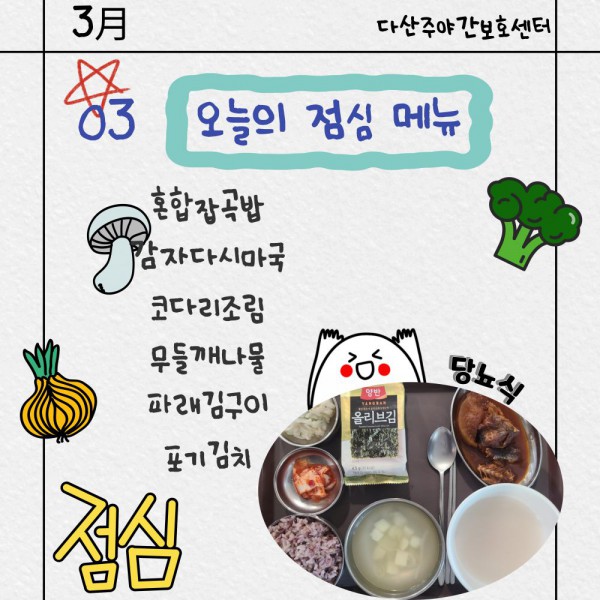 3月
다산주야간보호센터
03
오늘의 점심 메뉴
혼합잡곡밥
감자다시마국
코다리조림
무들깨나물
파래김구이
포기김치
당뇨식
양반
올리브김
점심